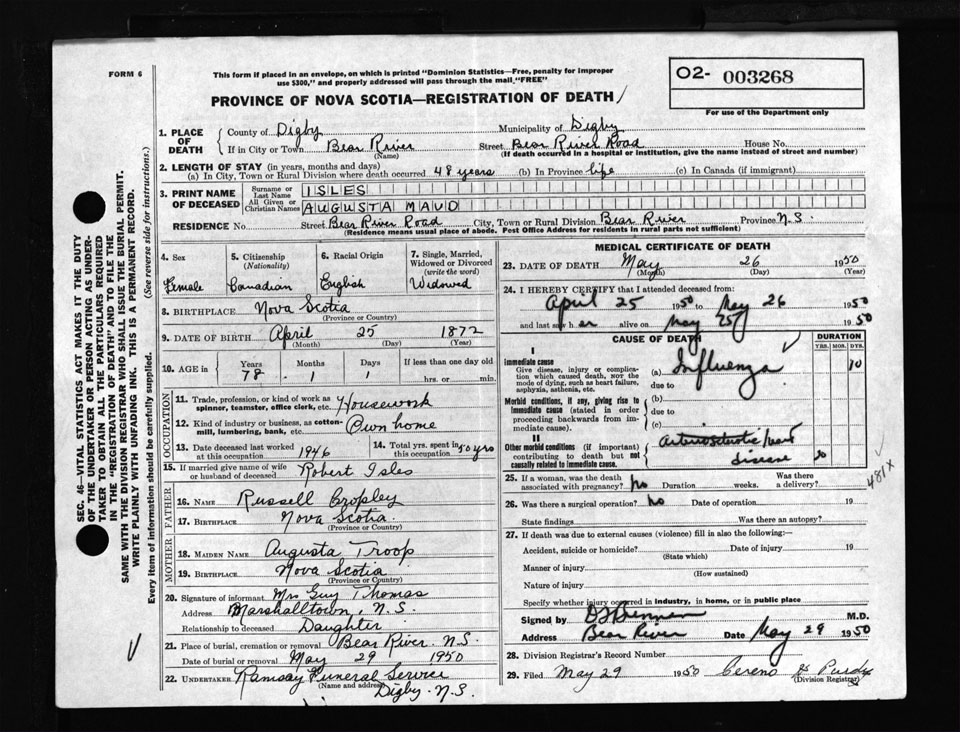 FORM 6
This form if placed in an envelope, on which is printed "Dominion Statistics—Free, penalty for improper
use $300," and properly addressed will pass through the mail "FREE"
O2- 003268
For use of the Department only
PROVINCE OF NOVA SCOTIA—REGISTRATION OF DEATH
1. PLACE OF DEATH
County of Digby Municipality of Digby
If in City or Town Bear River (Name) Street Bear River Road House No.
(If death occurred in a hospital or institution, give the name instead of street and number)
2. LENGTH OF STAY (in years, months and days)
(a) In City, Town or Rural Division where death occurred 48 years (b) In Province life (c) In Canada (if immigrant)
3. PRINT NAME OF DECEASED
Surname or Last Name ISLES
All Given or Christian Names AUGUSTA MAUD
RESIDENCE No. Street Bear River Road City, Town or Rural Division Bear River Province N.S.
(Residence means usual place of abode. Post Office Address for residents in rural parts not sufficient)
4. Sex
Female
5. Citizenship (Nationality)
Canadian
6. Racial Origin
English
7. Single, Married, Widowed or Divorced (write the word)
Widowed
8. BIRTHPLACE Nova Scotia
(Province or Country)
9. DATE OF BIRTH April 25 1872
(Month) (Day) (Year)
10. AGE in Years Months Days If less than one day old
78 1 1 hrs. or min.
OCCUPATION
11. Trade, profession, or kind of work as spinner, teamster, office clerk, etc. Housework
12. Kind of industry or business, as cotton-mill, lumbering, bank, etc. Own home
13. Date deceased last worked at this occupation 1946
14. Total yrs. spent in this occupation 50 yrs
15. If married give name of wife or husband of deceased Robert Isles
FATHER
16. NAME Russell Cropley
17. BIRTHPLACE Nova Scotia
(Province or Country)
MOTHER
18. MAIDEN NAME Augusta Troop
19. BIRTHPLACE Nova Scotia
(Province or Country)
20. Signature of informant Mrs Guy Thomas
Address Marshalltown, N.S.
Relationship to deceased Daughter
21. Place of burial, cremation or removal Bear River N.S.
Date of burial or removal May 29 1950
22. UNDERTAKER Ramsay Funeral Service
(Name and address) Digby N.S.
MEDICAL CERTIFICATE OF DEATH
23. DATE OF DEATH May 26 1950
(Month) (Day) (Year)
24. I HEREBY CERTIFY that I attended deceased from:
April 25 1950 to May 26 1950
and last saw her alive on May 25 1950
CAUSE OF DEATH
DURATION
YRS. MOS. DYS.
I
Immediate cause
Give disease, injury or complication which caused death, NOT the mode of dying, such as heart failure, asphyxia, asthenia, etc.
(a) Influenza 10
due to
Morbid conditions, if any, giving rise to immediate cause (stated in order proceeding backwards from immediate cause).
(b)
due to
(c)
II
Other morbid conditions (if important) contributing to death but not causally related to immediate cause.
heart
disease
481x
25. If a woman, was the death associated with pregnancy? No Duration weeks. Was there a delivery?
26. Was there a surgical operation? No Date of operation 19
State findings Was there an autopsy?
27. If death was due to external causes (violence) fill in also the following:—
Accident, suicide or homicide? Date of injury 19
(State which)
Manner of injury
(How sustained)
Nature of injury
Specify whether injury occurred in industry, in home, or in public place
Signed by M.D.
Address Bear River Date May 29 1950
28. Division Registrar's Record Number
29. Filed May 29 1950 Cereno Purdy
(Division Registrar)
SEC. 46—VITAL STATISTICS ACT MAKES IT THE DUTY
OF THE UNDERTAKER OR PERSON ACTING AS UNDER-
TAKER TO OBTAIN ALL THE PARTICULARS REQUIRED
IN THE "REGISTRATION OF DEATH" AND TO FILE THE
SAME WITH THE DIVISION REGISTRAR WHO SHALL ISSUE THE BURIAL PERMIT.
WRITE PLAINLY WITH UNFADING INK. THIS IS A PERMANENT RECORD.
Every item of information should be carefully supplied. (See reverse side for instructions.)